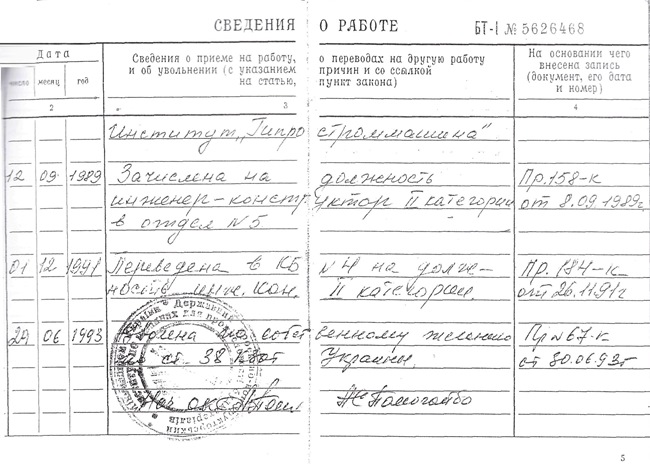 СВЕДЕНИЯ О РАБОТЕ БТ-I № 5626468
Дата
Сведения о приеме на работу, о переводах на другую работу
и об увольнении (с указанием причин и со ссылкой
на статью, пункт закона)
На основании чего
внесена запись
(документ, его дата
и номер)
число месяц год
2 3 4
Институт „Гипростроммашина"
12 09 1989 Зачислена на должность Пр.158-к
инженер-конструктор II категории от 8.09.1989г
в отдел №5
01 12 1991 Переведена в КБ №4 на долж- Пр. 184-к
ность инж. кон. II категории. от 26.11.91г
29 06 1993 по собственному желанию Пр №67-к
ст. 38 Украины. от 30.06.93г
5